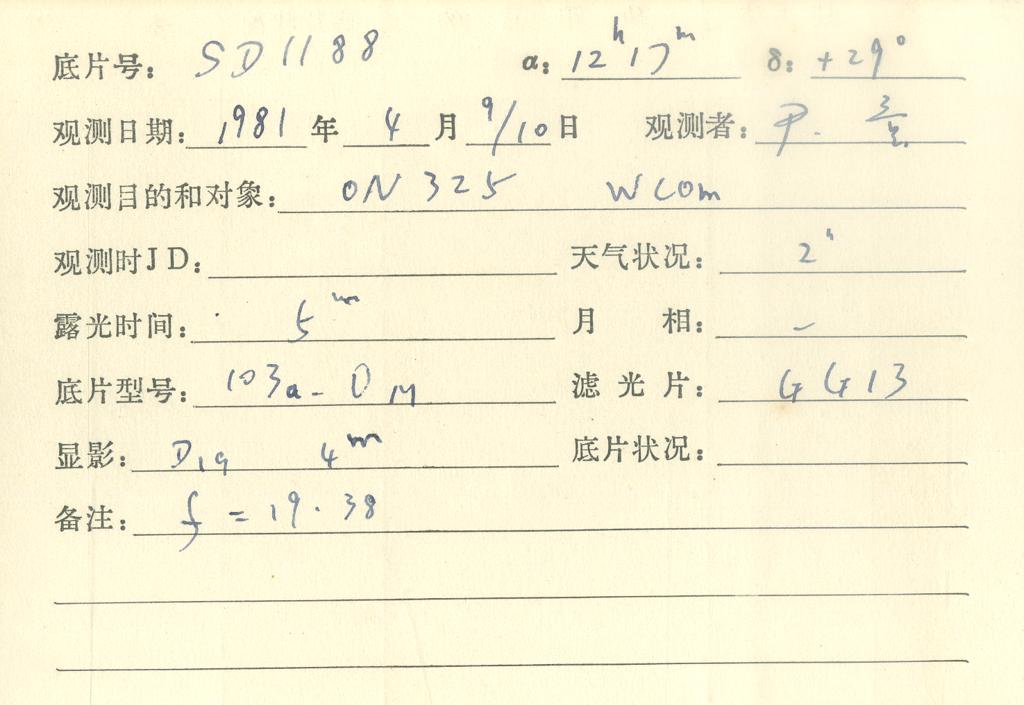 底片号: SD1188 α: 12h17m δ: +29°
观测日期: 1981 年 4 月 9/10 日 观测者:
观测目的和对象: ON 325 W Com
观测时JD: 天气状况: 2h
露光时间: 5m 月 相: –
底片型号: 103a-O 滤光片: GG13
显影: D19 4m 底片状况:
备注: f = 19.38